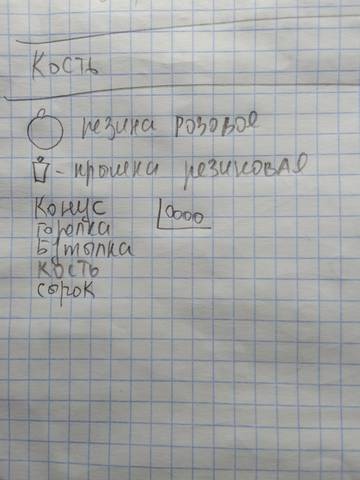 Кость
резина розовое
- крошка резиновая
Конус
Горолка
Бутылка
Кость
сырок